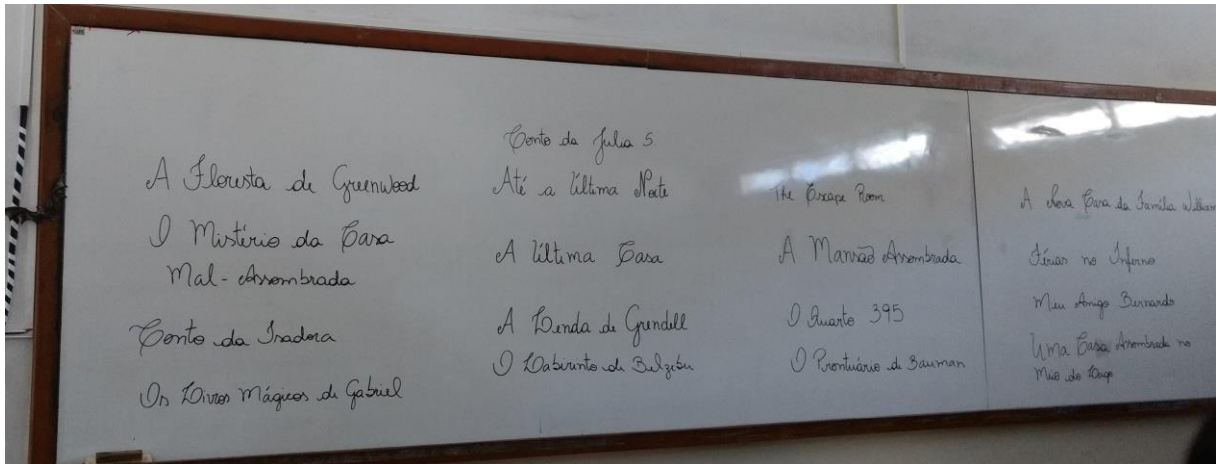 A Floresta de Greenwood
O Mistério da Casa
Mal-Assombrada
Conto da Isadora
Os Livros Mágicos de Gabriel
Conto da Julia S.
Até a Última Noite
A Última Casa
A Lenda de Grendell
O Labirinto de Belzebu
The Escape Room
A Mansão Assombrada
O Quarto 395
O Prontuário de Bauman
A Nova Casa da Família William
Férias no Inferno
Meu Amigo Bernardo
Uma Casa Assombrada no
Meio do Lago